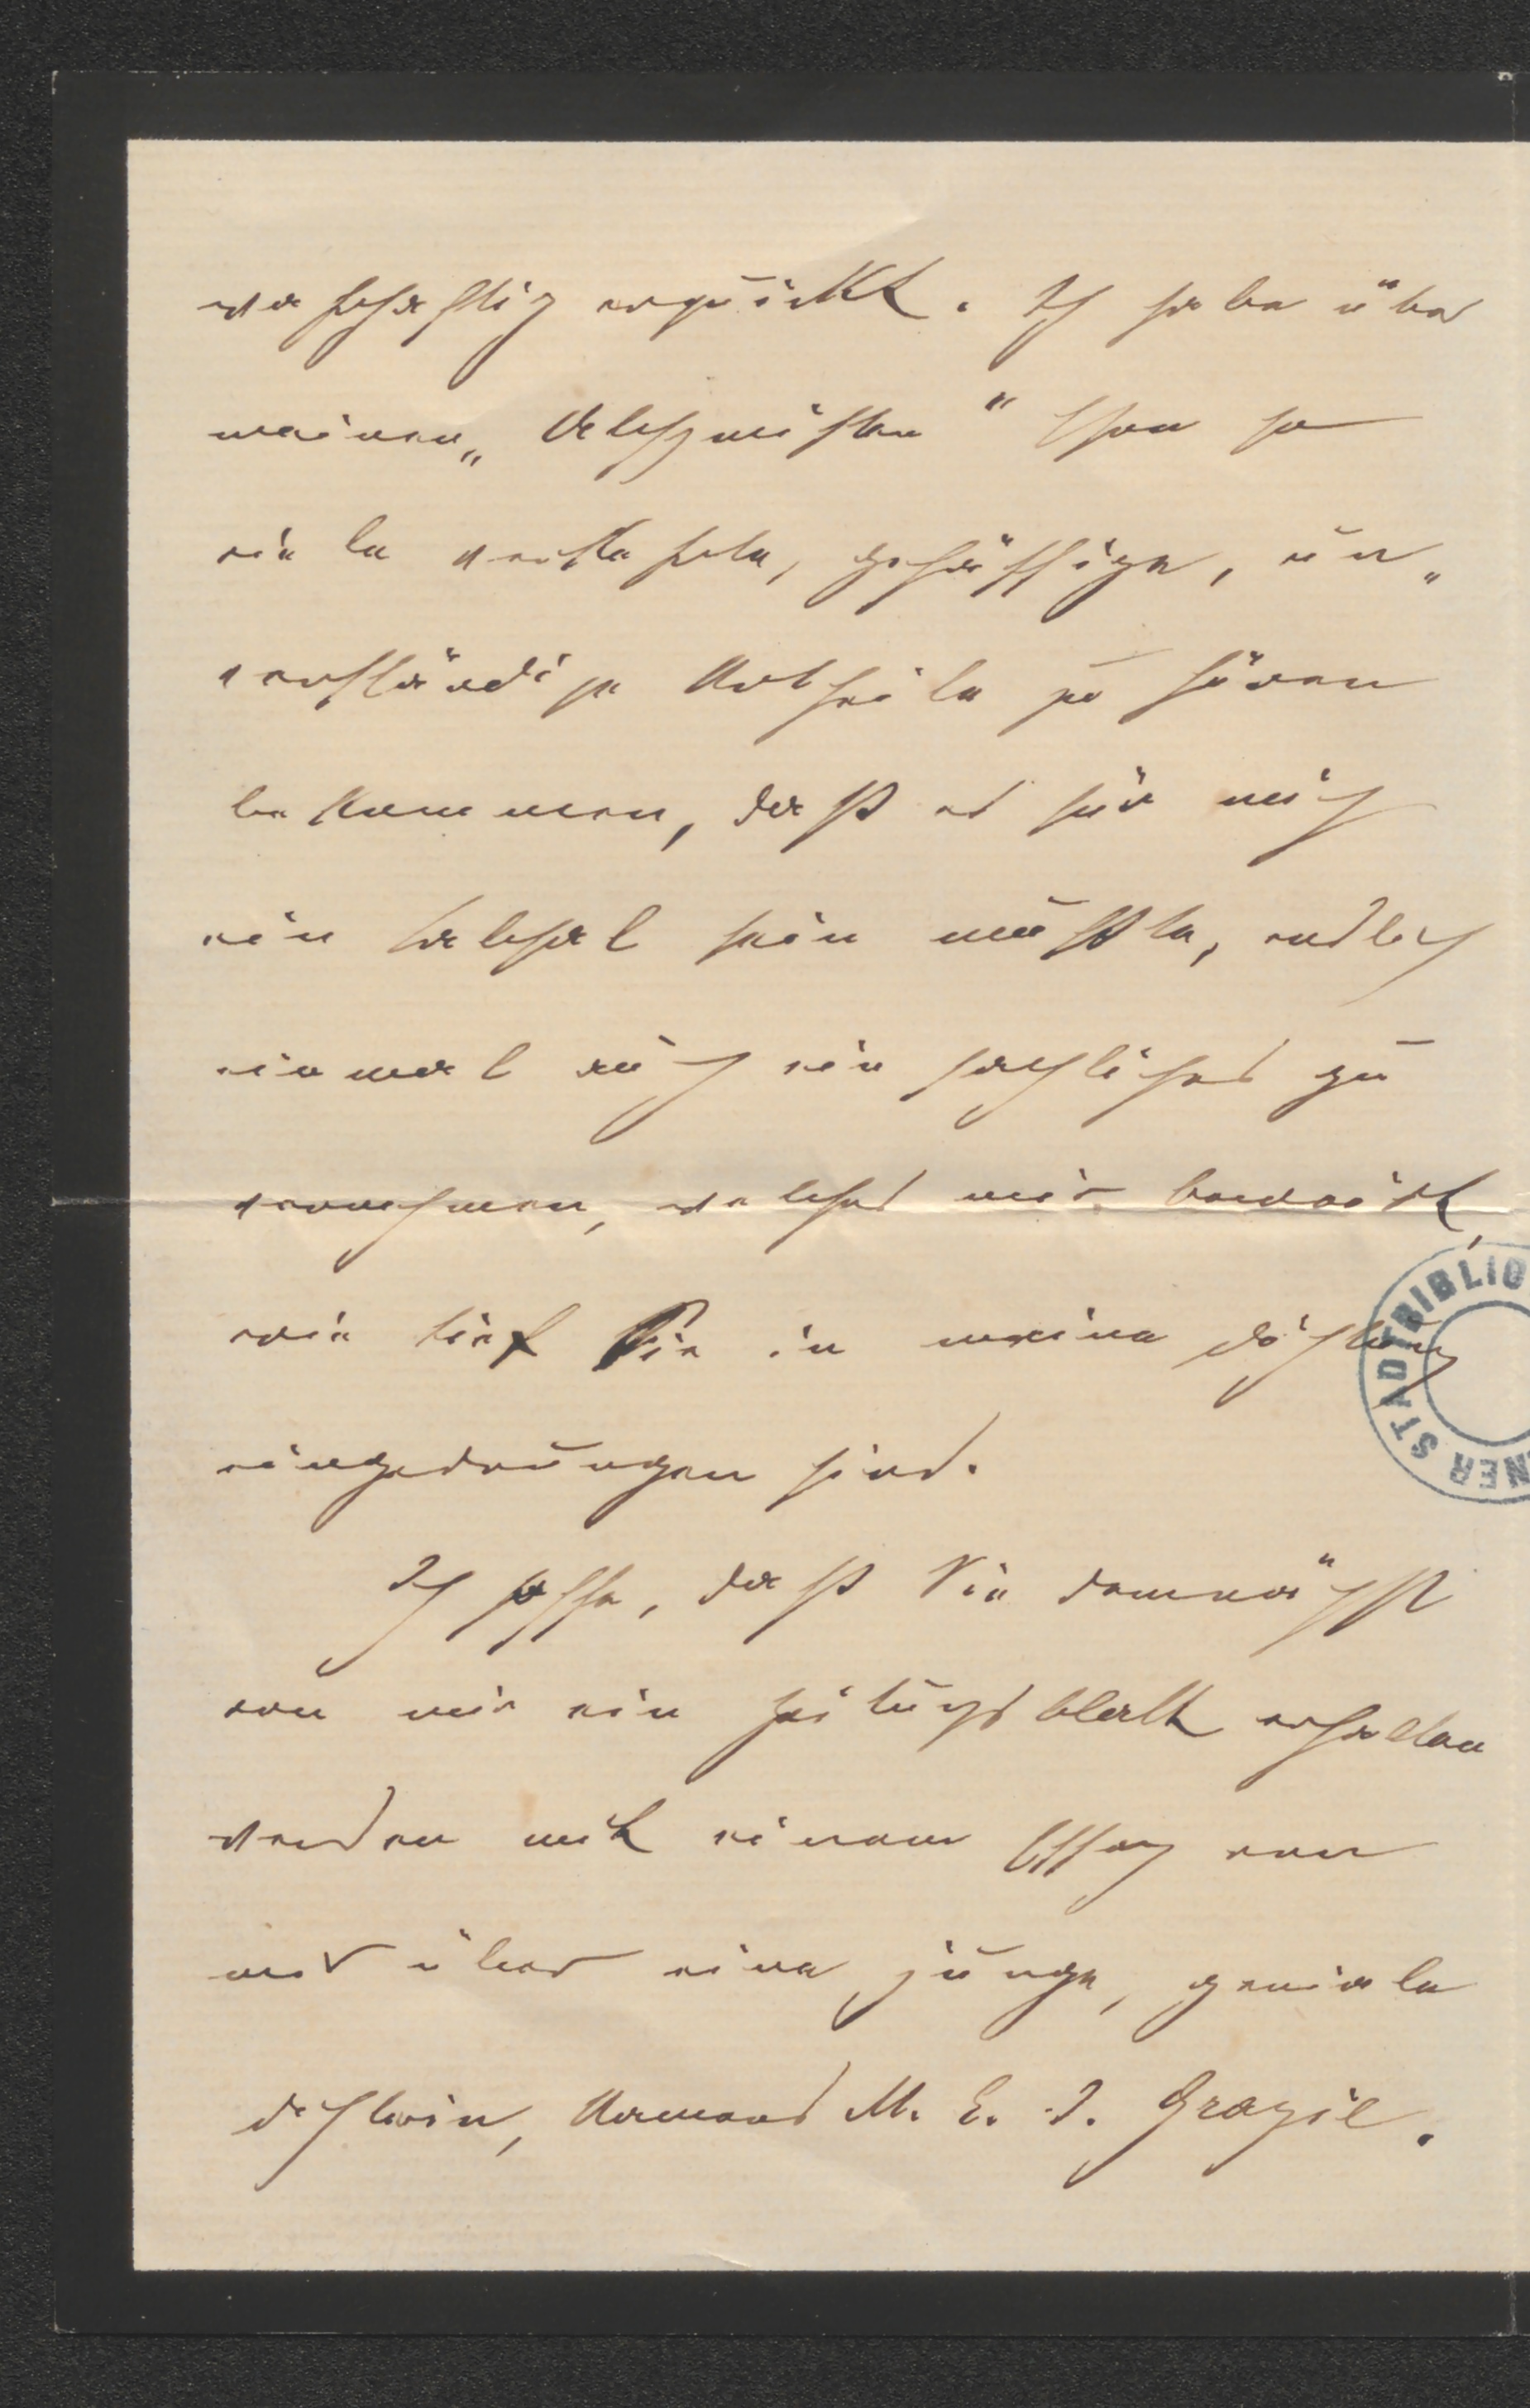 wahrhaftig erquickt. Ich habe über
meinen „Alchymisten“ schon so
viele verkehrte, gehässige, un„
verständige Urtheile zu hören
bekommen, daß es für mich
ein Labsal sein mußte, endlich
einmal auch ein solches zu
vernehmen, welches mir beweist,
wie tief Sie in meine Dichtung
eingedrungen sind.
Ich hoffe, daß Sie demnächst
von mir ein Zeitungsblatt erhalten
werden mit einem Essay von
mir über eine junge, geniale
Dichterin, Namens M. E. d. Grazie.
BIBLIO
NER STADT